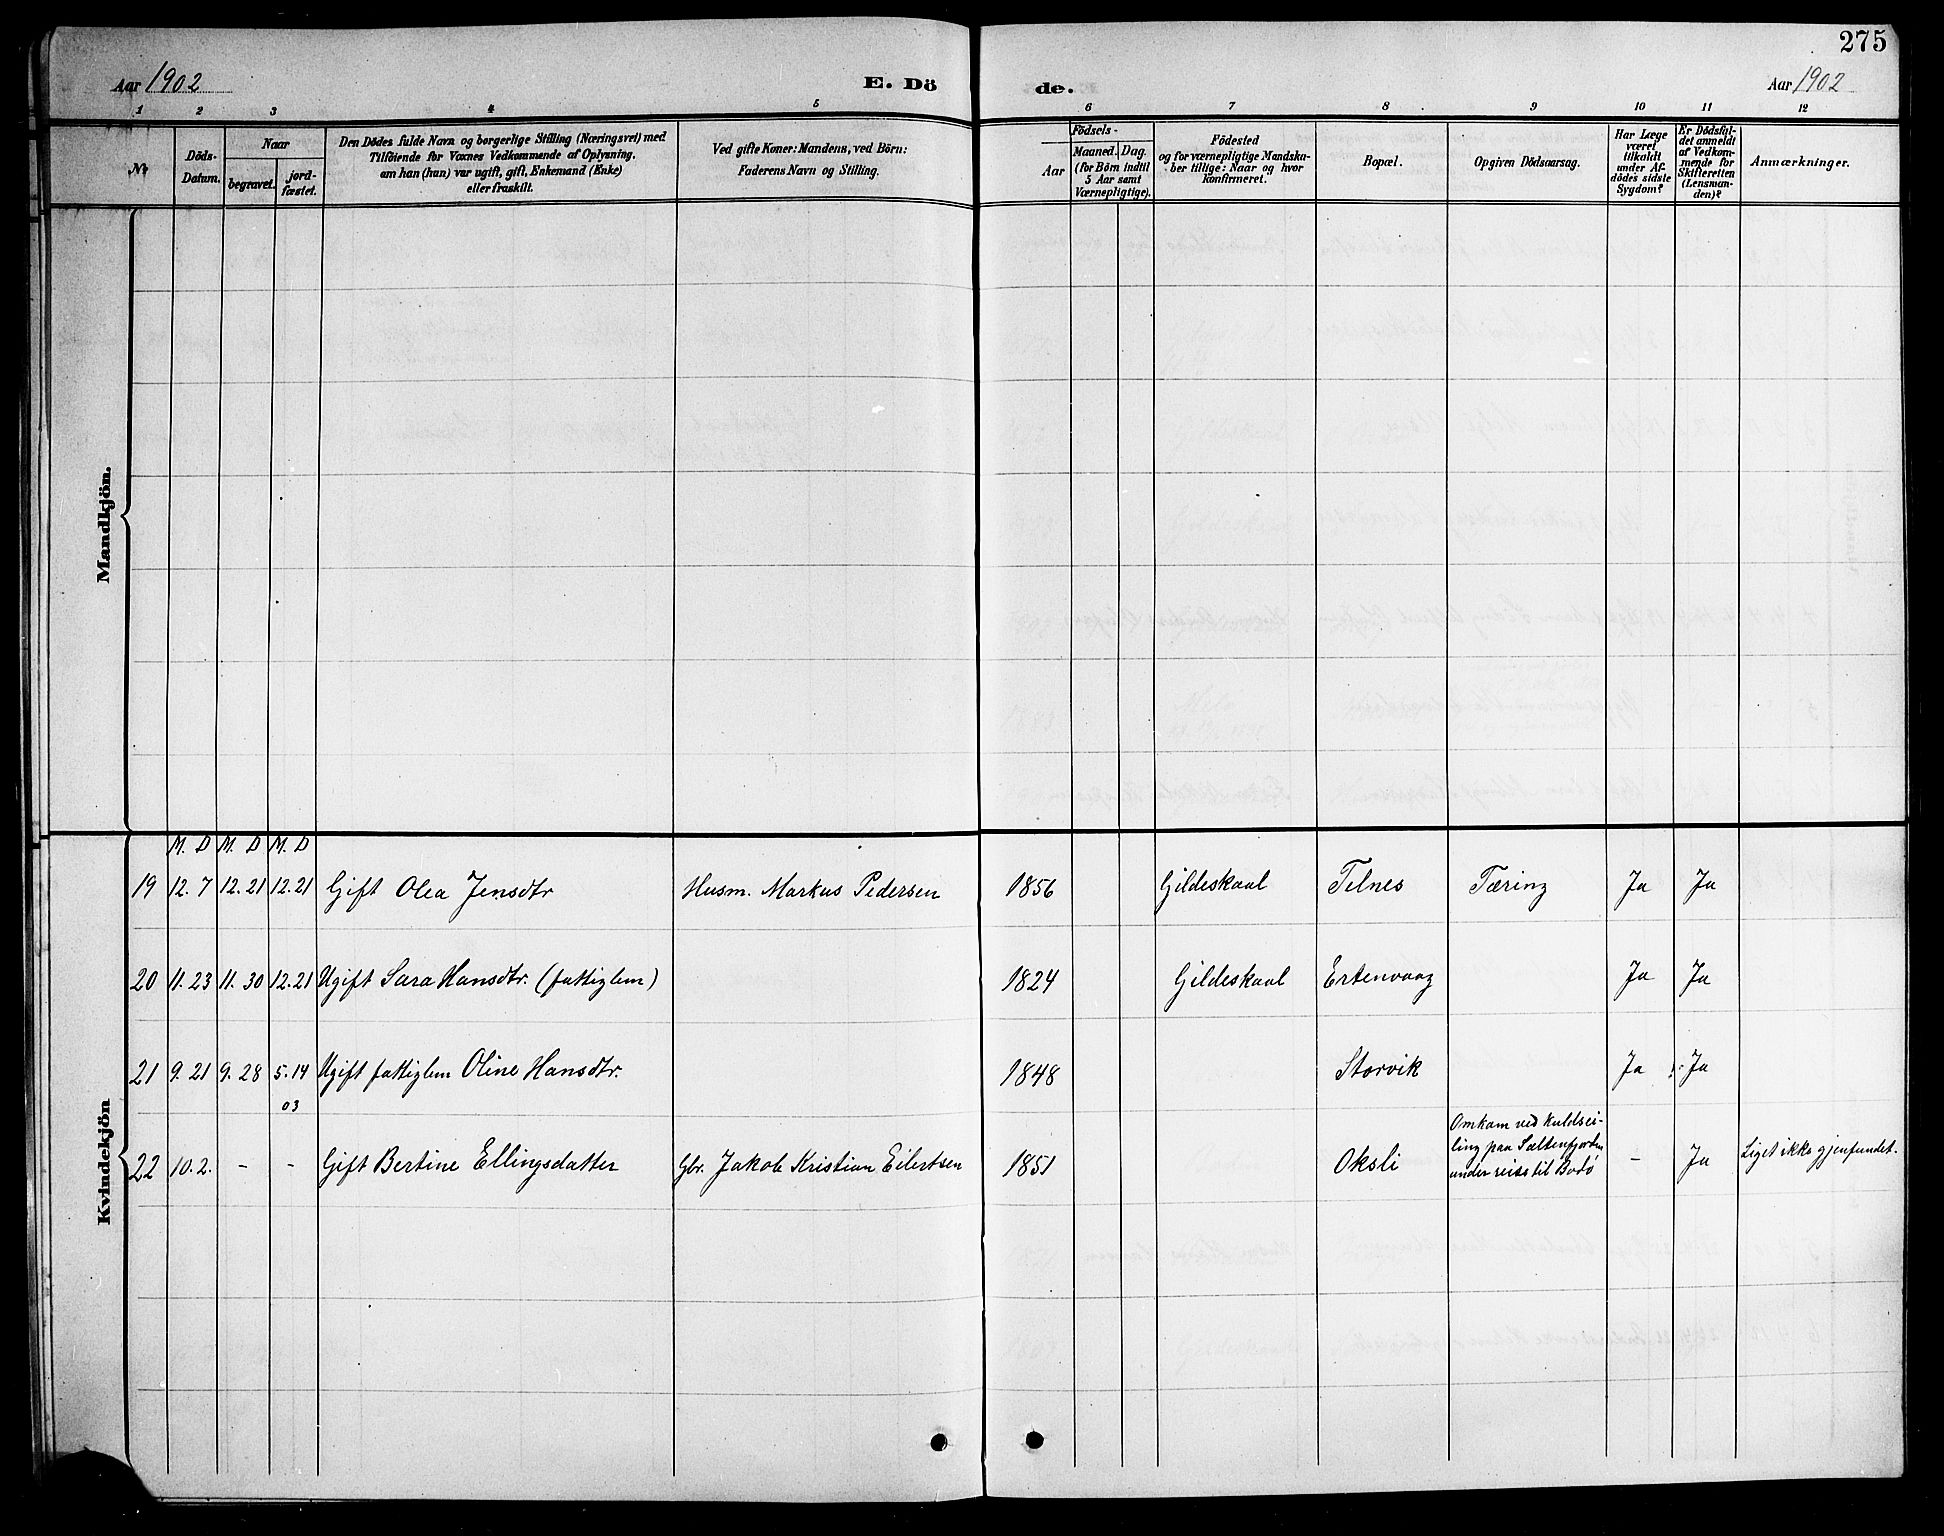 275
Aar 1902 E. Dö de. Aar 1902
1 2 3 4 5 6 7 8 9 10 11 12
No
Döds-
Datum.
Naar
begravet.
jord-
fæstet.
Den Dödes fulde Navn og borgerlige Stilling (Næringsvei) med
Tilföiende for Voxnes Vedkommende af Oplysning,
om han (hun) var ugift, gift, Enkemand (Enke)
eller fraskilt.
Ved gifte Koner: Mandens, ved Börn:
Faderens Navn og Stilling.
Födsels-
Aar
Maaned. Dag.
(for Börn indtil
5 Aar samt
Værnepligtige).
Födested
og for værnepligtige Mandska-
ber tillige: Naar og hvor
konfirmeret.
Bopæl.
Opgiven Dödsaarsag.
Har Læge
været
tilkaldt
under Af-
dödes sidste
Sygdom?
Er Dödsfal-
det anmeldt
af Vedkom-
mende for
Skifteretten
(Lensman-
den)?
Anmærkninger.
Mandkjön.
Kvindekjön
M. D M. D M. D
19 12. 7 12. 21 12. 21 Gift Olea Jensdtr Husm. Markus Pedersen 1856 Gildeskaal Telnes Tæring Ja Ja
20 11. 23 11. 30 12. 21 Ugift Sara Hansdtr. (fattiglem) 1824 Gildeskaal Ertenvaag Ja Ja
21 9. 21 9. 28 5. 14 Ugift fattiglem Oline Hansdtr. 1848 Storvik Ja Ja
03
22 10. 2. - - Gift Bertine Ellingsdatter Gbr. Jakob Kristian Eilertsen 1851 Oksli
Omkom ved kuldsei-
ling paa Saltenfjorden
under reise til Bodø
- Ja Liget ikke gjenfundet.